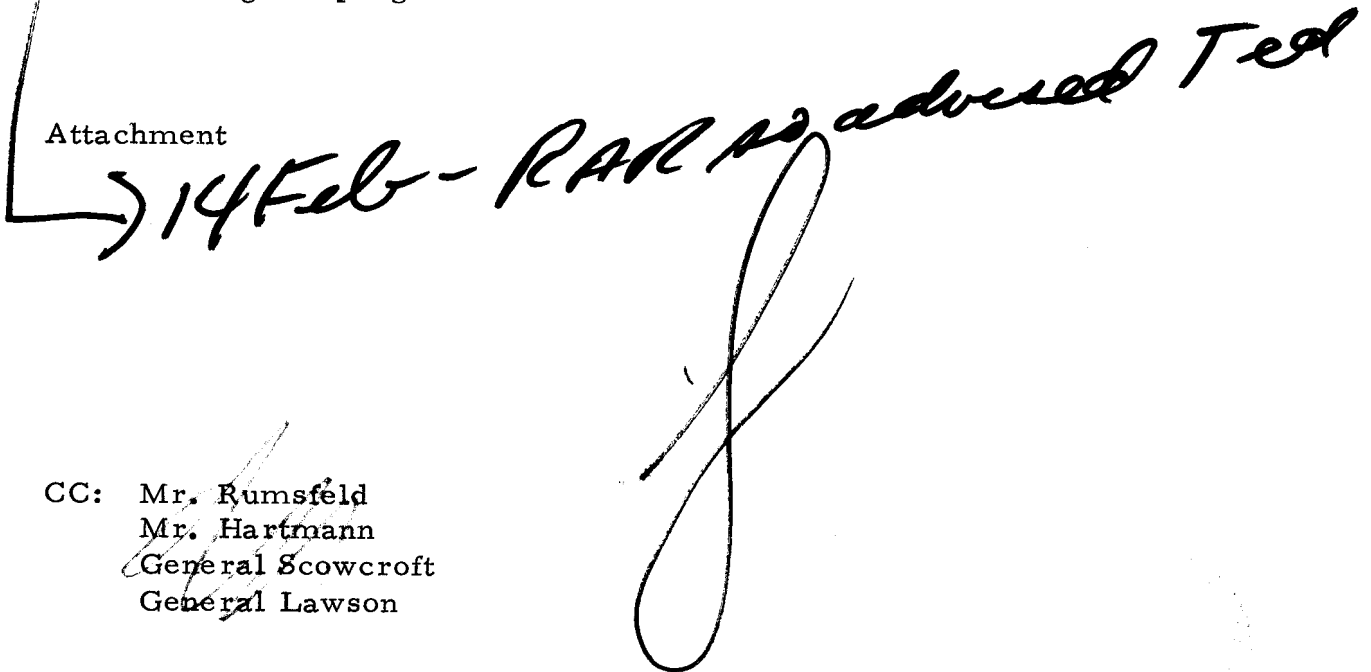 Attachment
14 Feb - RAR so advised Ted
CC: Mr. Rumsfeld
Mr. Hartmann
General Scowcroft
General Lawson